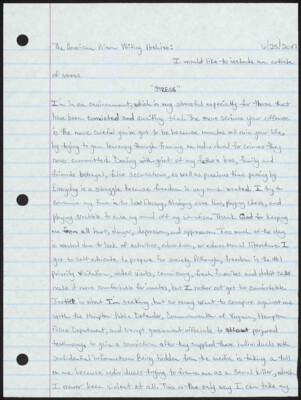 The American Prison Writing Archive: 6/25/2017
I would like to include an article
of stress
"STRESS"
I'm in an environment, which is very stressful especially for those that
have been convicted and awaiting trial. The more serious your offense
is the more careful you've got to be because inmates will ruin your lives
by trying to gain leverage through framing an individual for crimes they
never committed. Dealing with grief of my father's loss, family and
friends betrayal, false accusations, as well as precious time passing by
Everyday is a struggle because freedom is very much wanted. I try to
consume my time in the law library, studying case law, playing chess, and
playing scrabble to ease my mind off my situation. Thank God for keeping
me from all hurt, danger, depression, and oppression. Too much of the day
is wasted due to lack of activities, education, or educational literature. I
got to self educate to prepare for society. Although, freedom is the #1
priority visitation, video visits, commissary, fresh
make it more comfortable for inmates, but I rather not get too comfortable.
Justice is what I'm seeking, but so many want to conspire against me
with the Hampton Public Defender, Commonwealth of Virginia, Hampton
Police Department, and corrupt government officials to perjured
testimony to gain a conviction after they supplied these individuals with
confidential information. Being hidden from the media is taking a toll
on me, because individuals trying to frame me as a serial killer,
I never been violent at all. This is the only way I can take my